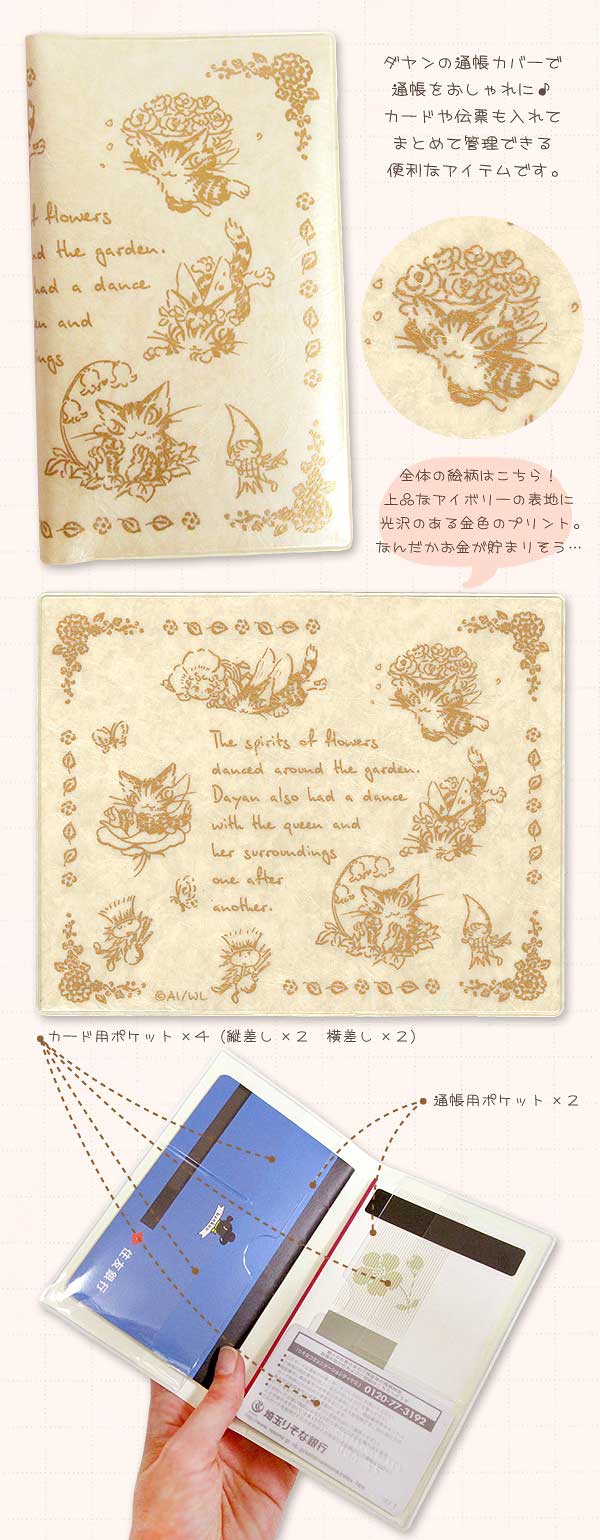 ダヤンの通帳カバーで
通帳をおしゃれに♪
カードや伝票も入れて
まとめて管理できる
便利なアイテムです。
of flowers
d the garden.
had a dance
en and
ngs
全体の絵柄はこちら!
上品なアイボリーの表地に
光沢のある金色のプリント。
なんだかお金が貯まりそう…
The spirits of flowers
danced around the garden.
Dayan also had a dance
with the queen and
her surroundings
one after
another.
©AI/WL
カード用ポケット×4(縦差し×2 横差し×2)
通帳用ポケット×2
住友銀行
0120-77-3192
埼玉りそな銀行